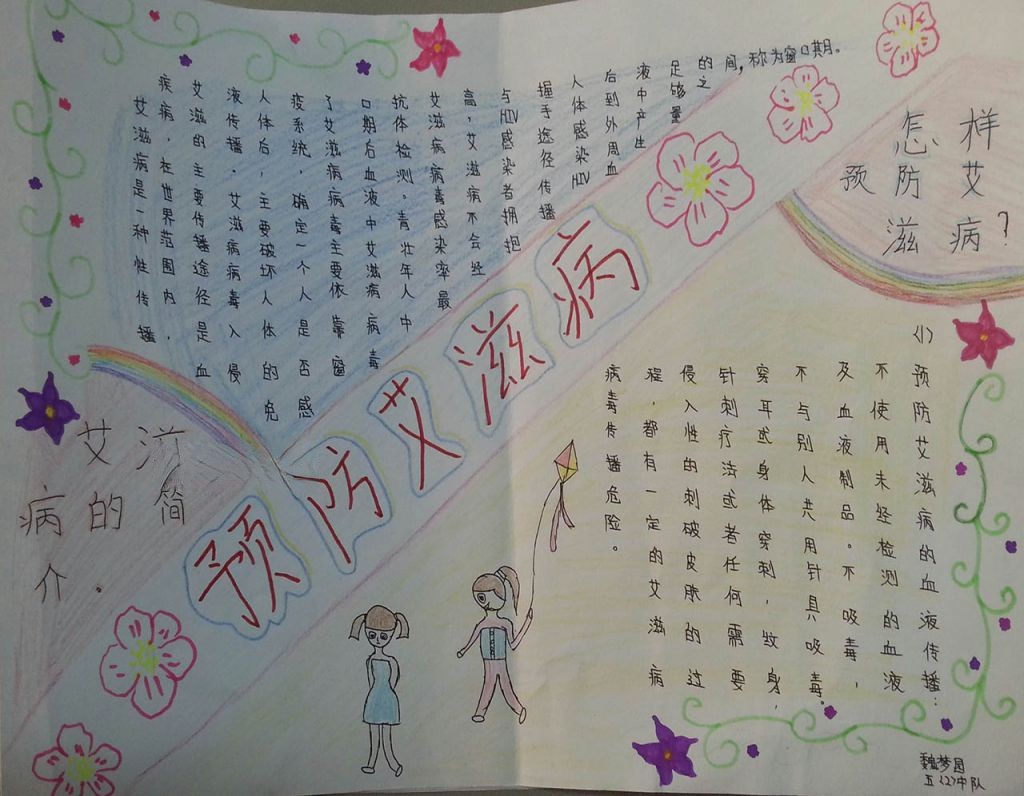 预防艾滋病
艾滋
病的简
介.
艾滋病是一种性传播
疾病，在世界范围内，
艾滋的主要传播途径是血
液传播。艾滋病病毒入侵
人体后，主要破坏人体的免
疫系统，确定一个人是否感
了艾滋病病毒主要依靠窗
口期后血液中艾滋病病毒
抗体检测。青壮年人中
艾滋病病毒感染率最
高，艾滋病不会经
与HIV感染者拥抱
握手途径传播
人体感染HIV
后到外周血
液中产生
足够量
的之间，称为窗口期。
怎样
预防艾
滋病？
(1)预防艾滋病的血液传播：
不使用未经检测的血液
及血液制品。不吸毒，
不与别人共用针具吸毒。
穿耳或身体穿刺，纹身，
针刺疗法或者任何需要
侵入性的刺破皮肤的过
程，都有一定的艾滋病
病毒传播危险。
魏梦园
五〈2〉中队